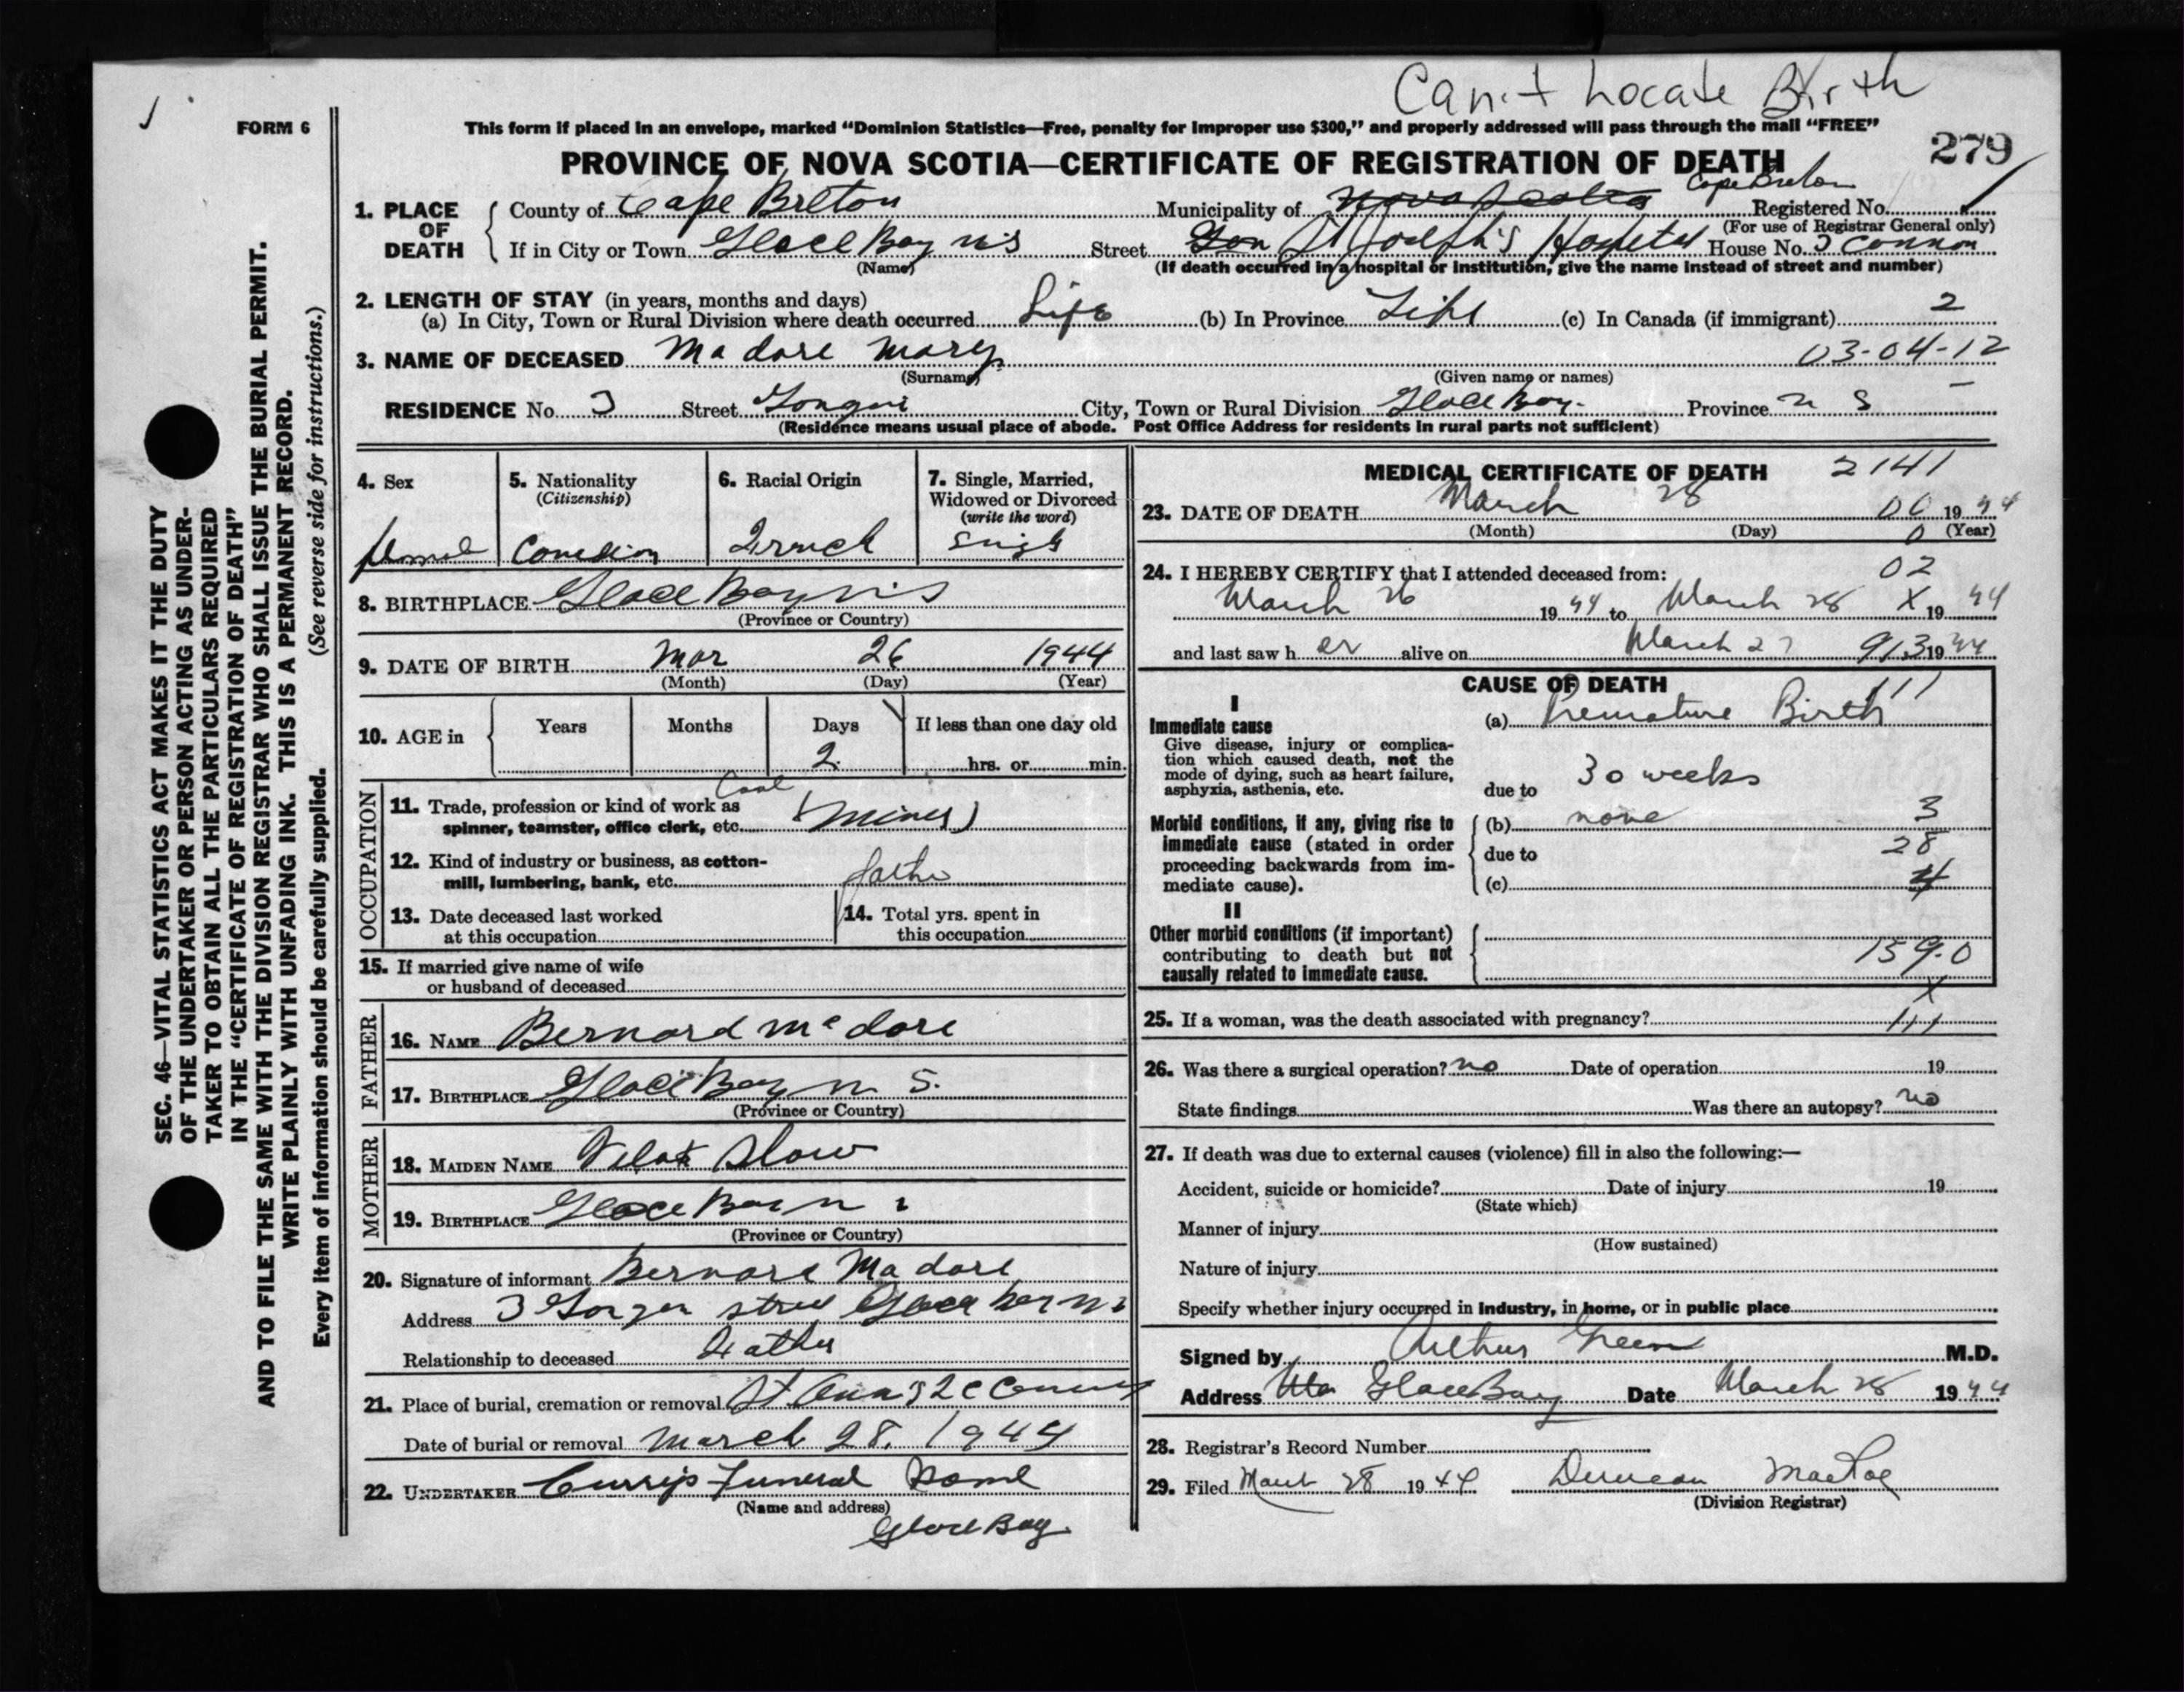 Can't Locate Birth
FORM 6
This form if placed in an envelope, marked “Dominion Statistics—Free, penalty for improper use $300,” and properly addressed will pass through the mail “FREE”
279
PROVINCE OF NOVA SCOTIA—CERTIFICATE OF REGISTRATION OF DEATH
1. PLACE OF DEATH
County of Cape Breton Municipality of Nova Scotia Cape Breton Registered No.
(For use of Registrar General only)
If in City or Town Glace Bay N.S Street St Joseph's Hospital House No. 3
(Name) (If death occurred in a hospital or institution, give the name instead of street and number)
2. LENGTH OF STAY (in years, months and days)
(a) In City, Town or Rural Division where death occurred Life (b) In Province Life (c) In Canada (if immigrant) 2
3. NAME OF DECEASED Madore Mary 03-04-12
(Surname) (Given name or names)
RESIDENCE No. 3 Street City, Town or Rural Division Glace Bay. Province N S
(Residence means usual place of abode. Post Office Address for residents in rural parts not sufficient)
4. Sex
Female
5. Nationality
(Citizenship)
Canadian
6. Racial Origin
French
7. Single, Married,
Widowed or Divorced
(write the word)
Single
8. BIRTHPLACE Glace Bay N.S
(Province or Country)
9. DATE OF BIRTH Mar 26 1944
(Month) (Day) (Year)
10. AGE in Years Months Days If less than one day old
2 hrs. or min.
OCCUPATION
11. Trade, profession or kind of work as
spinner, teamster, office clerk, etc. Coal (Miner)
12. Kind of industry or business, as cotton-
mill, lumbering, bank, etc. father
13. Date deceased last worked
at this occupation
14. Total yrs. spent in
this occupation
15. If married give name of wife
or husband of deceased
FATHER
16. NAME Bernard Madore
17. BIRTHPLACE Glace Bay N. S.
(Province or Country)
MOTHER
18. MAIDEN NAME Slow
19. BIRTHPLACE Glace Bay N S
(Province or Country)
20. Signature of informant Bernard Madore
Address 3 street Glace Bay N S
Relationship to deceased Father
21. Place of burial, cremation or removal St. Ann's
Date of burial or removal March 28, 1944
22. UNDERTAKER Curry's Funeral Home
(Name and address)
Glace Bay.
MEDICAL CERTIFICATE OF DEATH 2141
23. DATE OF DEATH March 28 00 1944
(Month) (Day) (Year)
0
24. I HEREBY CERTIFY that I attended deceased from: 02
March 26 1944 to March 28 X 1944
and last saw h er alive on March 27 913 1944
CAUSE OF DEATH 111
I
Immediate cause
Give disease, injury or complica-
tion which caused death, not the
mode of dying, such as heart failure,
asphyxia, asthenia, etc.
(a) Premature Birth
due to 30 weeks
Morbid conditions, if any, giving rise to
immediate cause (stated in order
proceeding backwards from im-
mediate cause).
(b) none 3
due to 28
(c) 4
II
Other morbid conditions (if important)
contributing to death but not
causally related to immediate cause.
159.0
X
25. If a woman, was the death associated with pregnancy? 111
26. Was there a surgical operation? no Date of operation 19
State findings Was there an autopsy? no
27. If death was due to external causes (violence) fill in also the following:—
Accident, suicide or homicide? Date of injury 19
(State which)
Manner of injury
(How sustained)
Nature of injury
Specify whether injury occurred in industry, in home, or in public place
Signed by Arthur Green M.D.
Address Glace Bay Date March 28 1944
28. Registrar's Record Number
29. Filed March 28 1944 Duncan MacRae
(Division Registrar)
SEC. 46—VITAL STATISTICS ACT MAKES IT THE DUTY
OF THE UNDERTAKER OR PERSON ACTING AS UNDER-
TAKER TO OBTAIN ALL THE PARTICULARS REQUIRED
IN THE “CERTIFICATE OF REGISTRATION OF DEATH”
AND TO FILE THE SAME WITH THE DIVISION REGISTRAR WHO SHALL ISSUE THE BURIAL PERMIT.
WRITE PLAINLY WITH UNFADING INK. THIS IS A PERMANENT RECORD.
Every item of information should be carefully supplied. (See reverse side for instructions.)